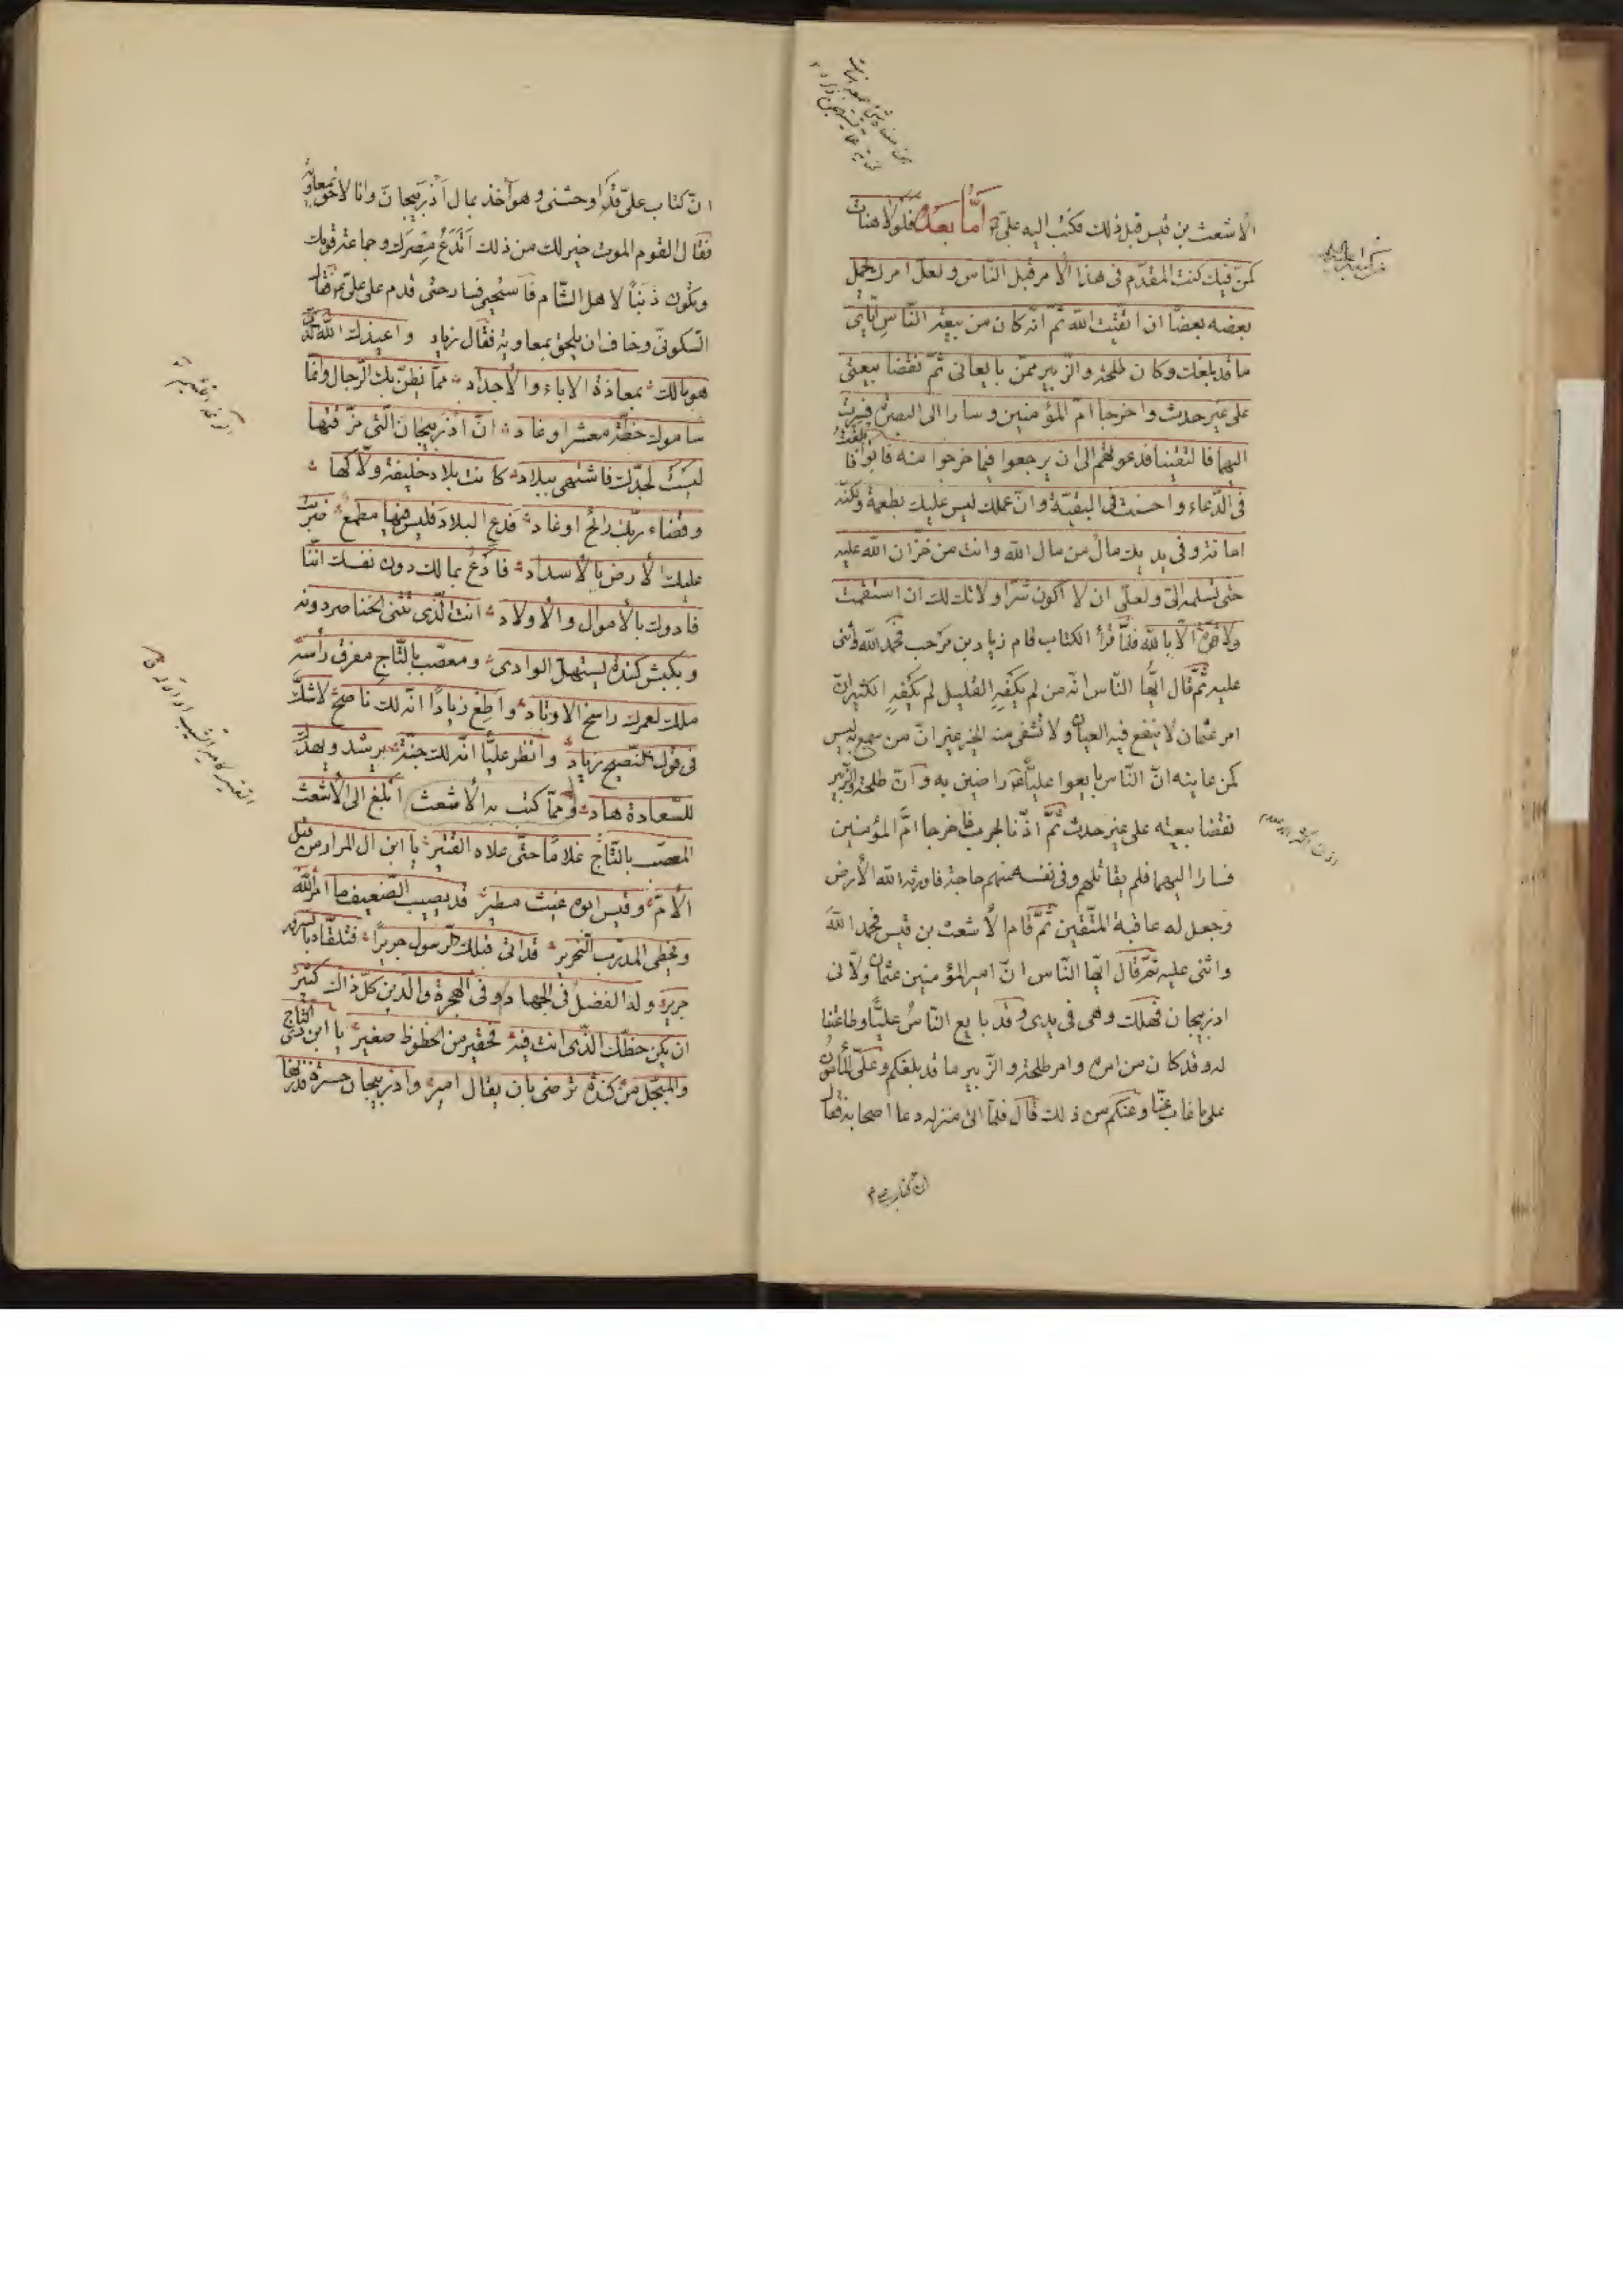 الاشعث بن قيس قبل ذلك فكتب اليه علي اما بعد فلولا هنات
كن فيك كنت المقدم في هذا الامر قبل الناس ولعل امرك يحمل
بعضه بعضا ان اتقيت الله ثم انه كان من بيعة الناس اياي
ما قد بلغك وكان طلحة والزبير ممن بايعاني ثم نقضا بيعتي
على غير حدث واخرجا ام المؤمنين وسارا الى البصرة فسرت
اليهما فالتقينا فدعوتهم الى ان يرجعوا فيما خرجوا منه فابوا فابلغت
في الدعاء واحسنت في البقية وان عملك ليس عليك بطعمة ولكنه
امانة وفي يديك مال من مال الله وانت من خزان الله عليه
حتى تسلمه الي ولعلي ان لا اكون شر ولاتك لك ان استقمت
ولا قوة الا بالله فلما قرأ الكتاب قام زياد بن مرحب فحمد الله واثنى
عليه ثم قال ايها الناس انه من لم يكفه القليل لم يكفه الكثير ان
امر عثمان لا ينفع فيه العيان ولا تشفي منه الخبر غير ان من سمع به ليس
كمن عاينه ان الناس بايعوا عليا راضين به وان طلحة والزبير
نقضا بيعته على غير حدث ثم اذنا بحرب فاخرجا ام المؤمنين
فسارا اليهما فلم يقاتلهم وفي نفسه منهم حاجة فاورثه الله الارض
وجعل له عاقبة المتقين ثم قام الاشعث بن قيس فحمد الله
واثنى عليه ثم قال ايها الناس ان امير المؤمنين عثمان ولاني
اذربيجان فهلك وهي في يدي وقد بايع الناس عليا وطاعتنا
له وقد كان من امره وامر طلحة والزبير ما قد بلغكم وعلي المأمون
على ما غاب عنا وعنكم من ذلك قال فلما اتى منزله دعا اصحابه فقال
ان كتاب علي
ان كتاب علي قد اوحشني وهو آخذ بمال اذربيجان وانا لاحق بمعاوية
فقال القوم الموت خير لك من ذلك اتدع مصرك وجماعة قومك
وتكون ذنبا لاهل الشام فاستحيى فسار حتى قدم على علي فقال
السكوني وخاف ان يلحق بمعاوية فقال زياد واعيذك بالله الذي
هو مالك بمعاذة الاباء والاجداد مما نظن بك الرجال وانما
ساموك خطة معشر اوغاد ان اذربيجان التي مزقتها
ليست لجدك فاشنهى ببلاد كانت بلاد خليفة ولاكها
وقضاء ربك رائح او غاد فدع البلاد فليس فيها مطمع ضربت
عليك الارض بالاسداد فادفع بمالك دون نفسك اننا
فادوك بالاموال والاولاد انت الذي تثنى الخناصر دونه
وبكبش كندة يستهل الوادي ومعصب بالتاج مفرق رأسه
ملك لعمرك راسخ الاوتاد واطع زيادا انه لك ناصح لا شك
في قول النصيح زياد وانظر عليا انه لك جنة يرشد ويهديك
للسعادة هاد ومما كتب به الاشعث ابلغ الى الاشعث
المعصب بالتاج غلاما حتى علاه القتير يا ابن ال المرار من قبل
الام وقيس ابوه غيث مطير قد يصيب الضعيف ما امر الله
ويخطى المدرب النحرير قد اتى قبلك الرسول جريرا فتلقاه بالسرور
جرير وله الفضل في الجهاد وفي الهجرة والدين كل ذاك كثير
ان يكن حظك الذي انت فيه فحقير من الحظوظ صغير يا ابن ذي التاج
والمبجل من كندة ترضى بان يقال امير واذربيجان حسرة فذرنها